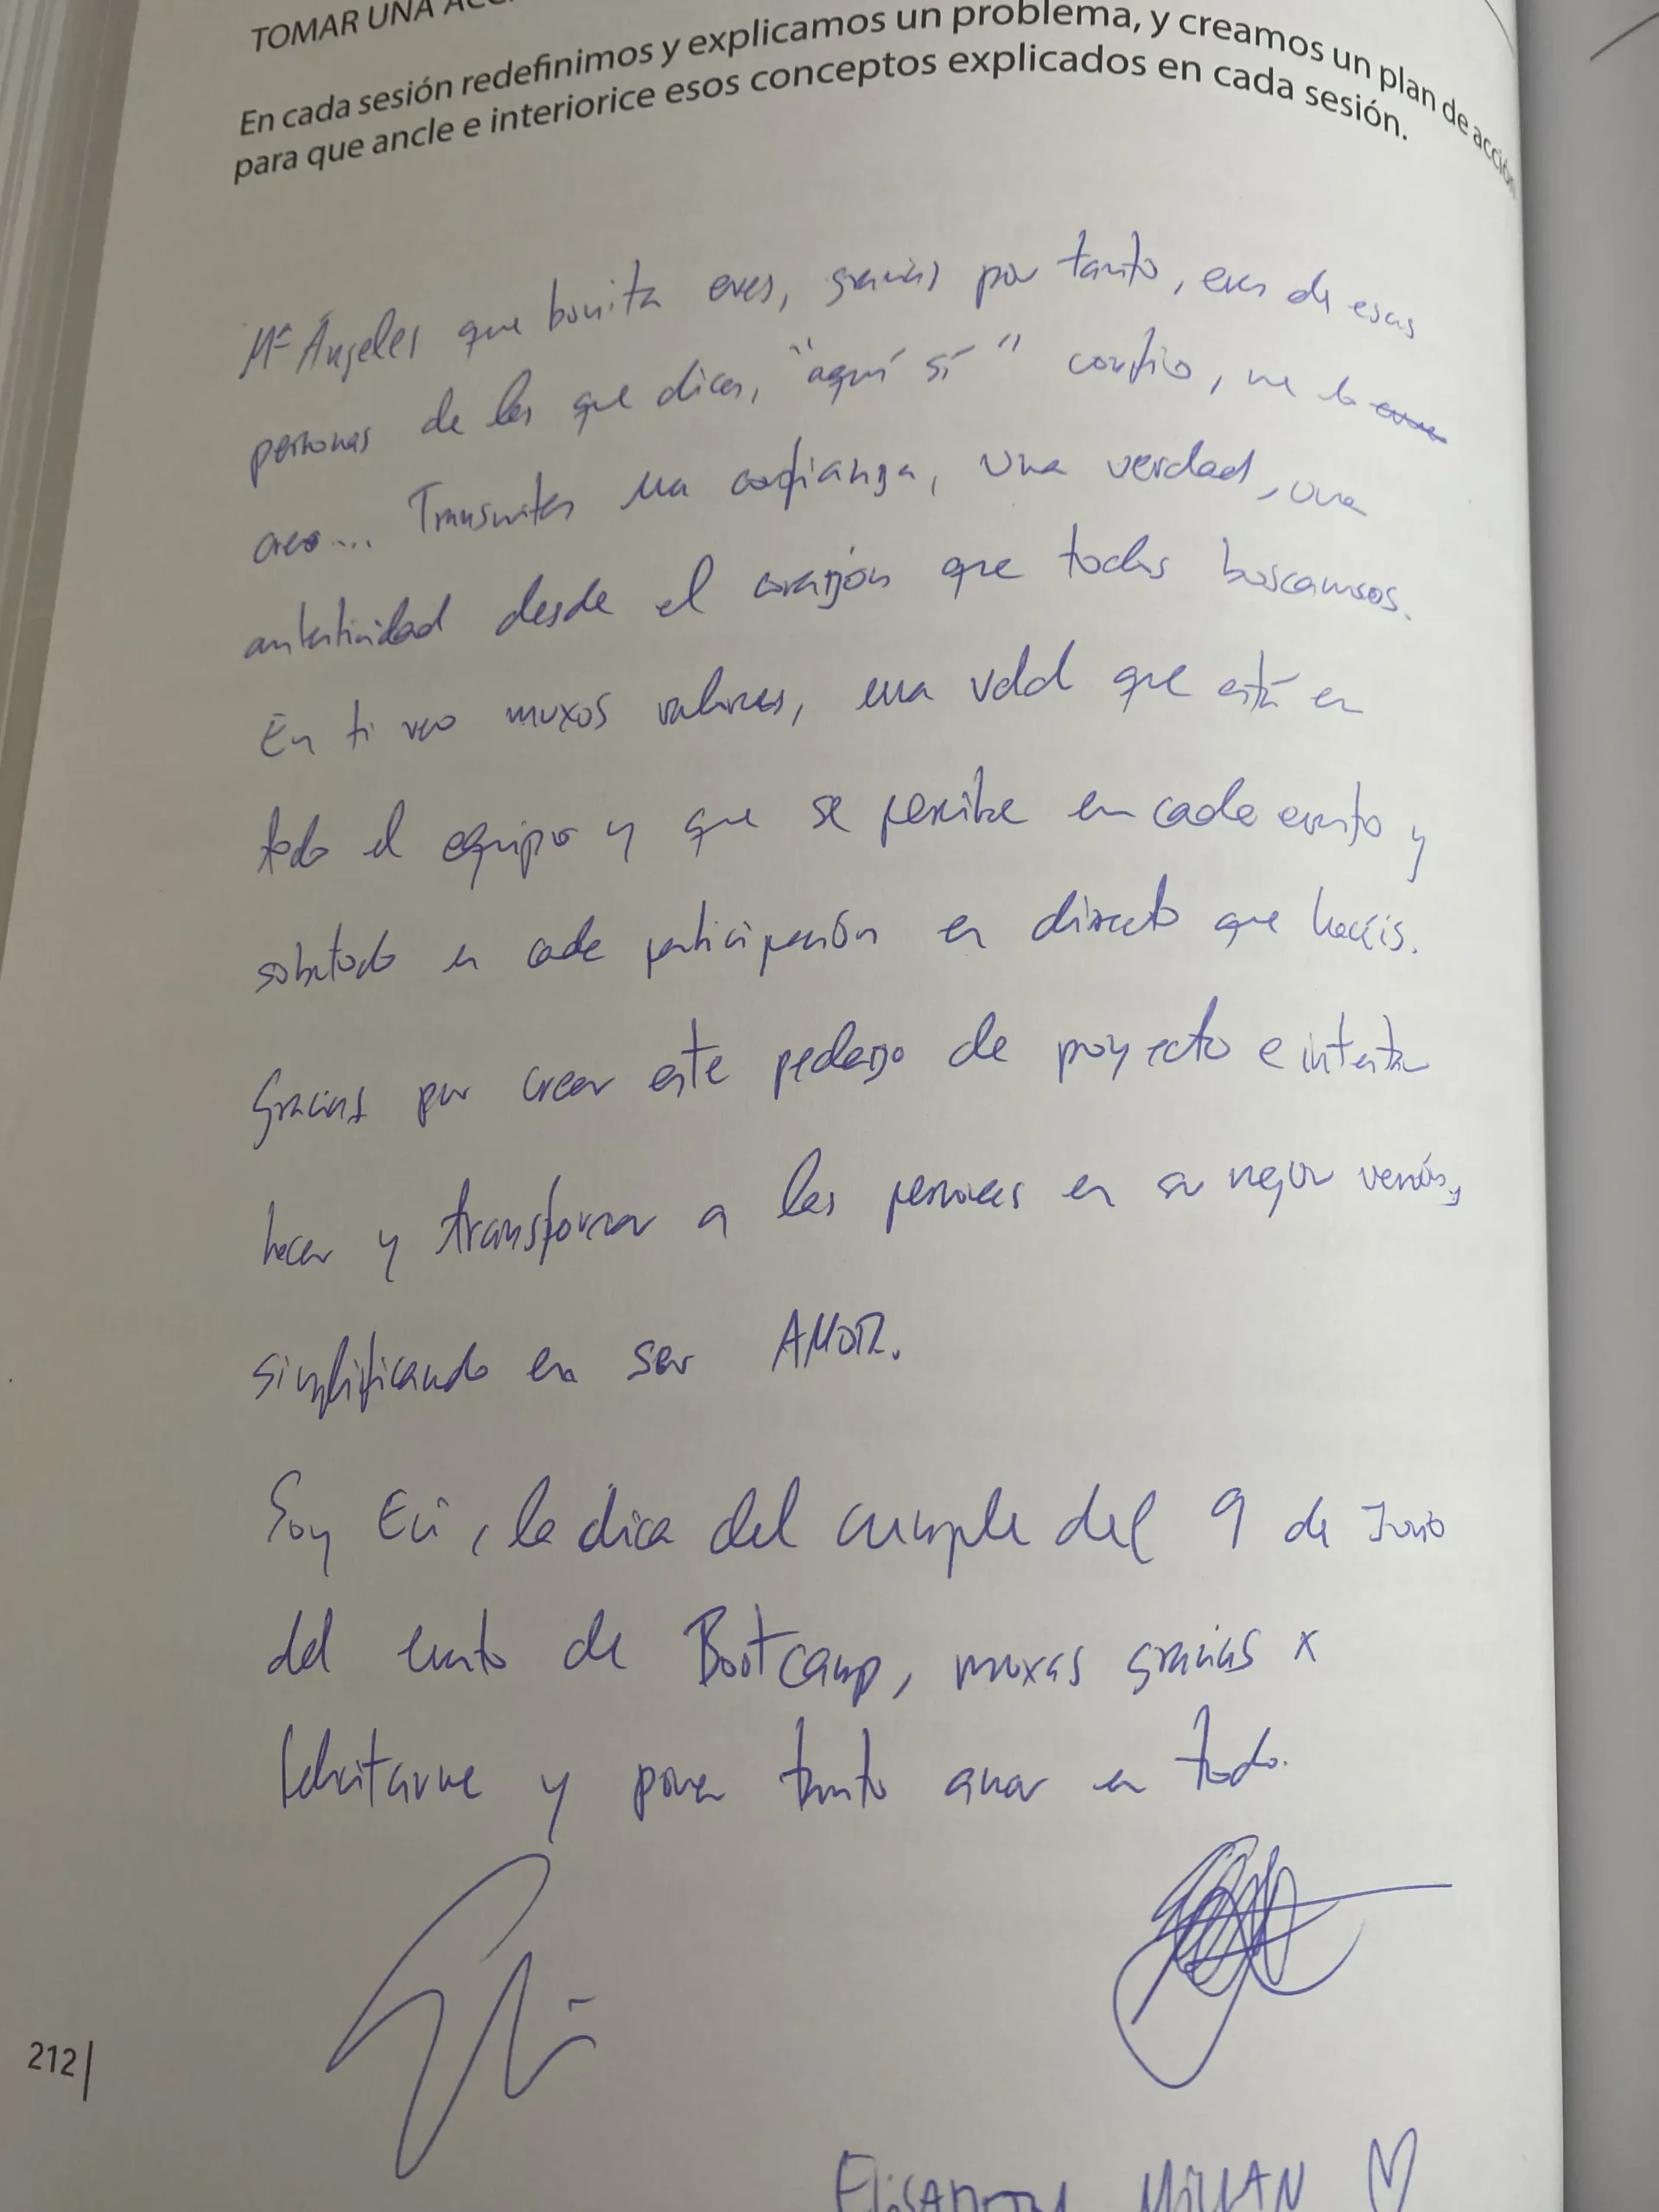 TOMAR UNA
En cada sesión redefinimos y explicamos un problema, y creamos un plan de acción
para que ancle e interiorice esos conceptos explicados en cada sesión.
Mª Ángeles que bonita eres, gracias por tanto, eres de esas
personas de las que dices, "aquí sí" confio, me lo
creo... Transmites una confianza, una verdad, una
autenticidad desde el corazón que todos buscamos.
En ti veo muxos valores, una vdd que está en
todo el equipo y que se percibe en cada evento y
sobretodo en cada participación en directo que hacéis.
Gracias por crear este pedazo de proyecto e intentar
hacer y transformar a las personas en su mejor versión,
simplificando en ser AMOR.
Soy Eli, la chica del cumple del 9 de Junio
del evento de Bootcamp, muxas gracias x
felicitarme y poner tanto amor en todo.
Eli
212
MILLAN